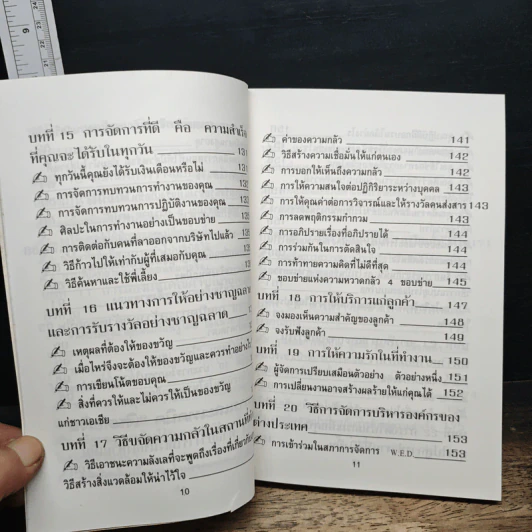 บทที่ 15 การจัดการที่ดี คือ ความสำเร็จ
ที่คุณจะได้รับในทุกวัน
ทุกวันนี้คุณยังได้รับเงินเดือนหรือไม่
การจัดการทบทวนการทำงานของคุณ
การจัดการทบทวนการปฏิบัติงานของคุณ
ศิลปะในการทำงานอย่างเป็นขอบข่าย
การติดต่อกับคนที่ลาออกจากบริษัทไปแล้ว
วิธีก้าวไปให้เท่ากับผู้ที่เสมอกับคุณ
วิธีค้นหาและใช้พี่เลี้ยง
บทที่ 16 แนวทางการให้อย่างชาญฉลาด
และการรับรางวัลอย่างชาญฉลาด
เหตุผลที่ต้องให้ของขวัญ
เมื่อไหร่จึงจะต้องให้ของขวัญและควรทำอย่างไร
การเขียนโน้ตขอบคุณ
สิ่งที่ควรให้และไม่ควรให้เป็นของขวัญ
แก่ชาวเอเชีย
บทที่ 17 วิธีขจัดความกลัวในสถานที่
วิธีเอาชนะความลังเลที่จะพูดถึงเรื่องที่เกี่ยว
วิธีสร้างสิ่งแวดล้อมให้น่าไว้ใจ
10
ค่าของความกลัว 141
วิธีสร้างความเชื่อมั่นให้แก่ตนเอง 142
การบอกให้เห็นถึงความกลัว 142
การให้ความสนใจต่อปฏิกิริยาระหว่างบุคคล 143
การให้คุณค่าต่อการวิจารณ์และให้รางวัลคนส่งสาร 143
การลดพฤติกรรมกำกวม 143
การอภิปรายเรื่องที่อภิปรายได้ 144
การร่วมกันในการตัดสินใจ 144
การท้าทายความคิดที่ไม่ดีที่สุด 144
ขอบข่ายแห่งความหวาดกลัว 4 ขอบข่าย 145
บทที่ 18 การให้บริการแก่ลูกค้า 147
จงมองเห็นความสำคัญของลูกค้า 148
จงรับฟังลูกค้า 149
บทที่ 19 การให้ความรักในที่ทำงาน 150
ผู้จัดการเปรียบเสมือนตัวอย่าง ตัวอย่างหนึ่ง 151
การเปลี่ยนงานอาจสร้างผลร้ายให้แก่คุณได้ 152
บทที่ 20 วิธีการจัดการบริหารองค์กรของ
ต่างประเทศ 153
การเข้าร่วมในสภาการจัดการ W.E.D. 153
11